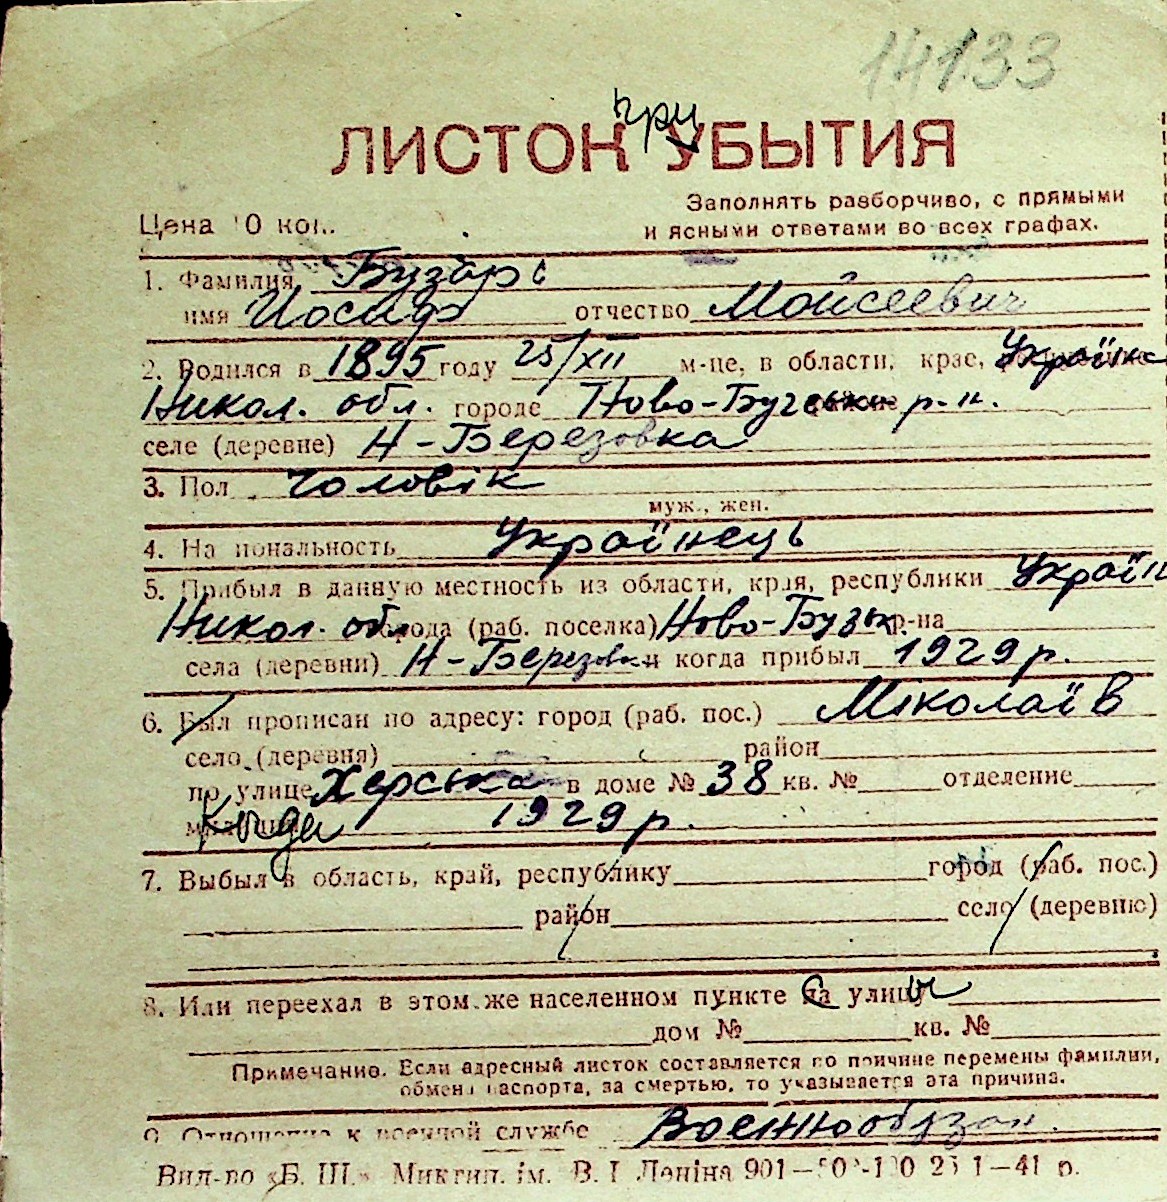 14133
при
ЛИСТОК УБЫТИЯ
Заполнять разборчиво, с прямыми
Цена 10 коп.
и ясными ответами во всех графах.
1. Фамилия Бузарь
имя Иосиф отчество Мойсеевич
2. Родился в 1895 году 25/XII м-це, в области, крае, Україна
Никол. обл. городе Ново-Бугськ р-н.
селе (деревне) Н-Березовка
3. Пол чоловік
муж., жен.
4. Национальность Українець
5. Прибыл в данную местность из области, края, республики Україн
Никол. обл. города (раб. поселка) Ново-Бузьк. р-на
села (деревни) Н-Березовки когда прибыл 1929 р.
6. Был прописан по адресу: город (раб. пос.) Міколаїв
село (деревня) район
по улице Херська в доме № 38 кв. № отделение
1929 р.
7. Выбыл в область, край, республику город (раб. пос.)
район село (деревню)
8. Или переехал в этом же населенном пункте на улицу
дом № кв. №
Примечание. Если адресный листок составляется по причине перемены фамилии,
обмена паспорта, за смертью, то указывается эта причина.
9. Отношение к военной службе Военнообязан.
Вид-во «Б. Ш.» Микгип. ім. В. І Леніна 901— 1—41 р.